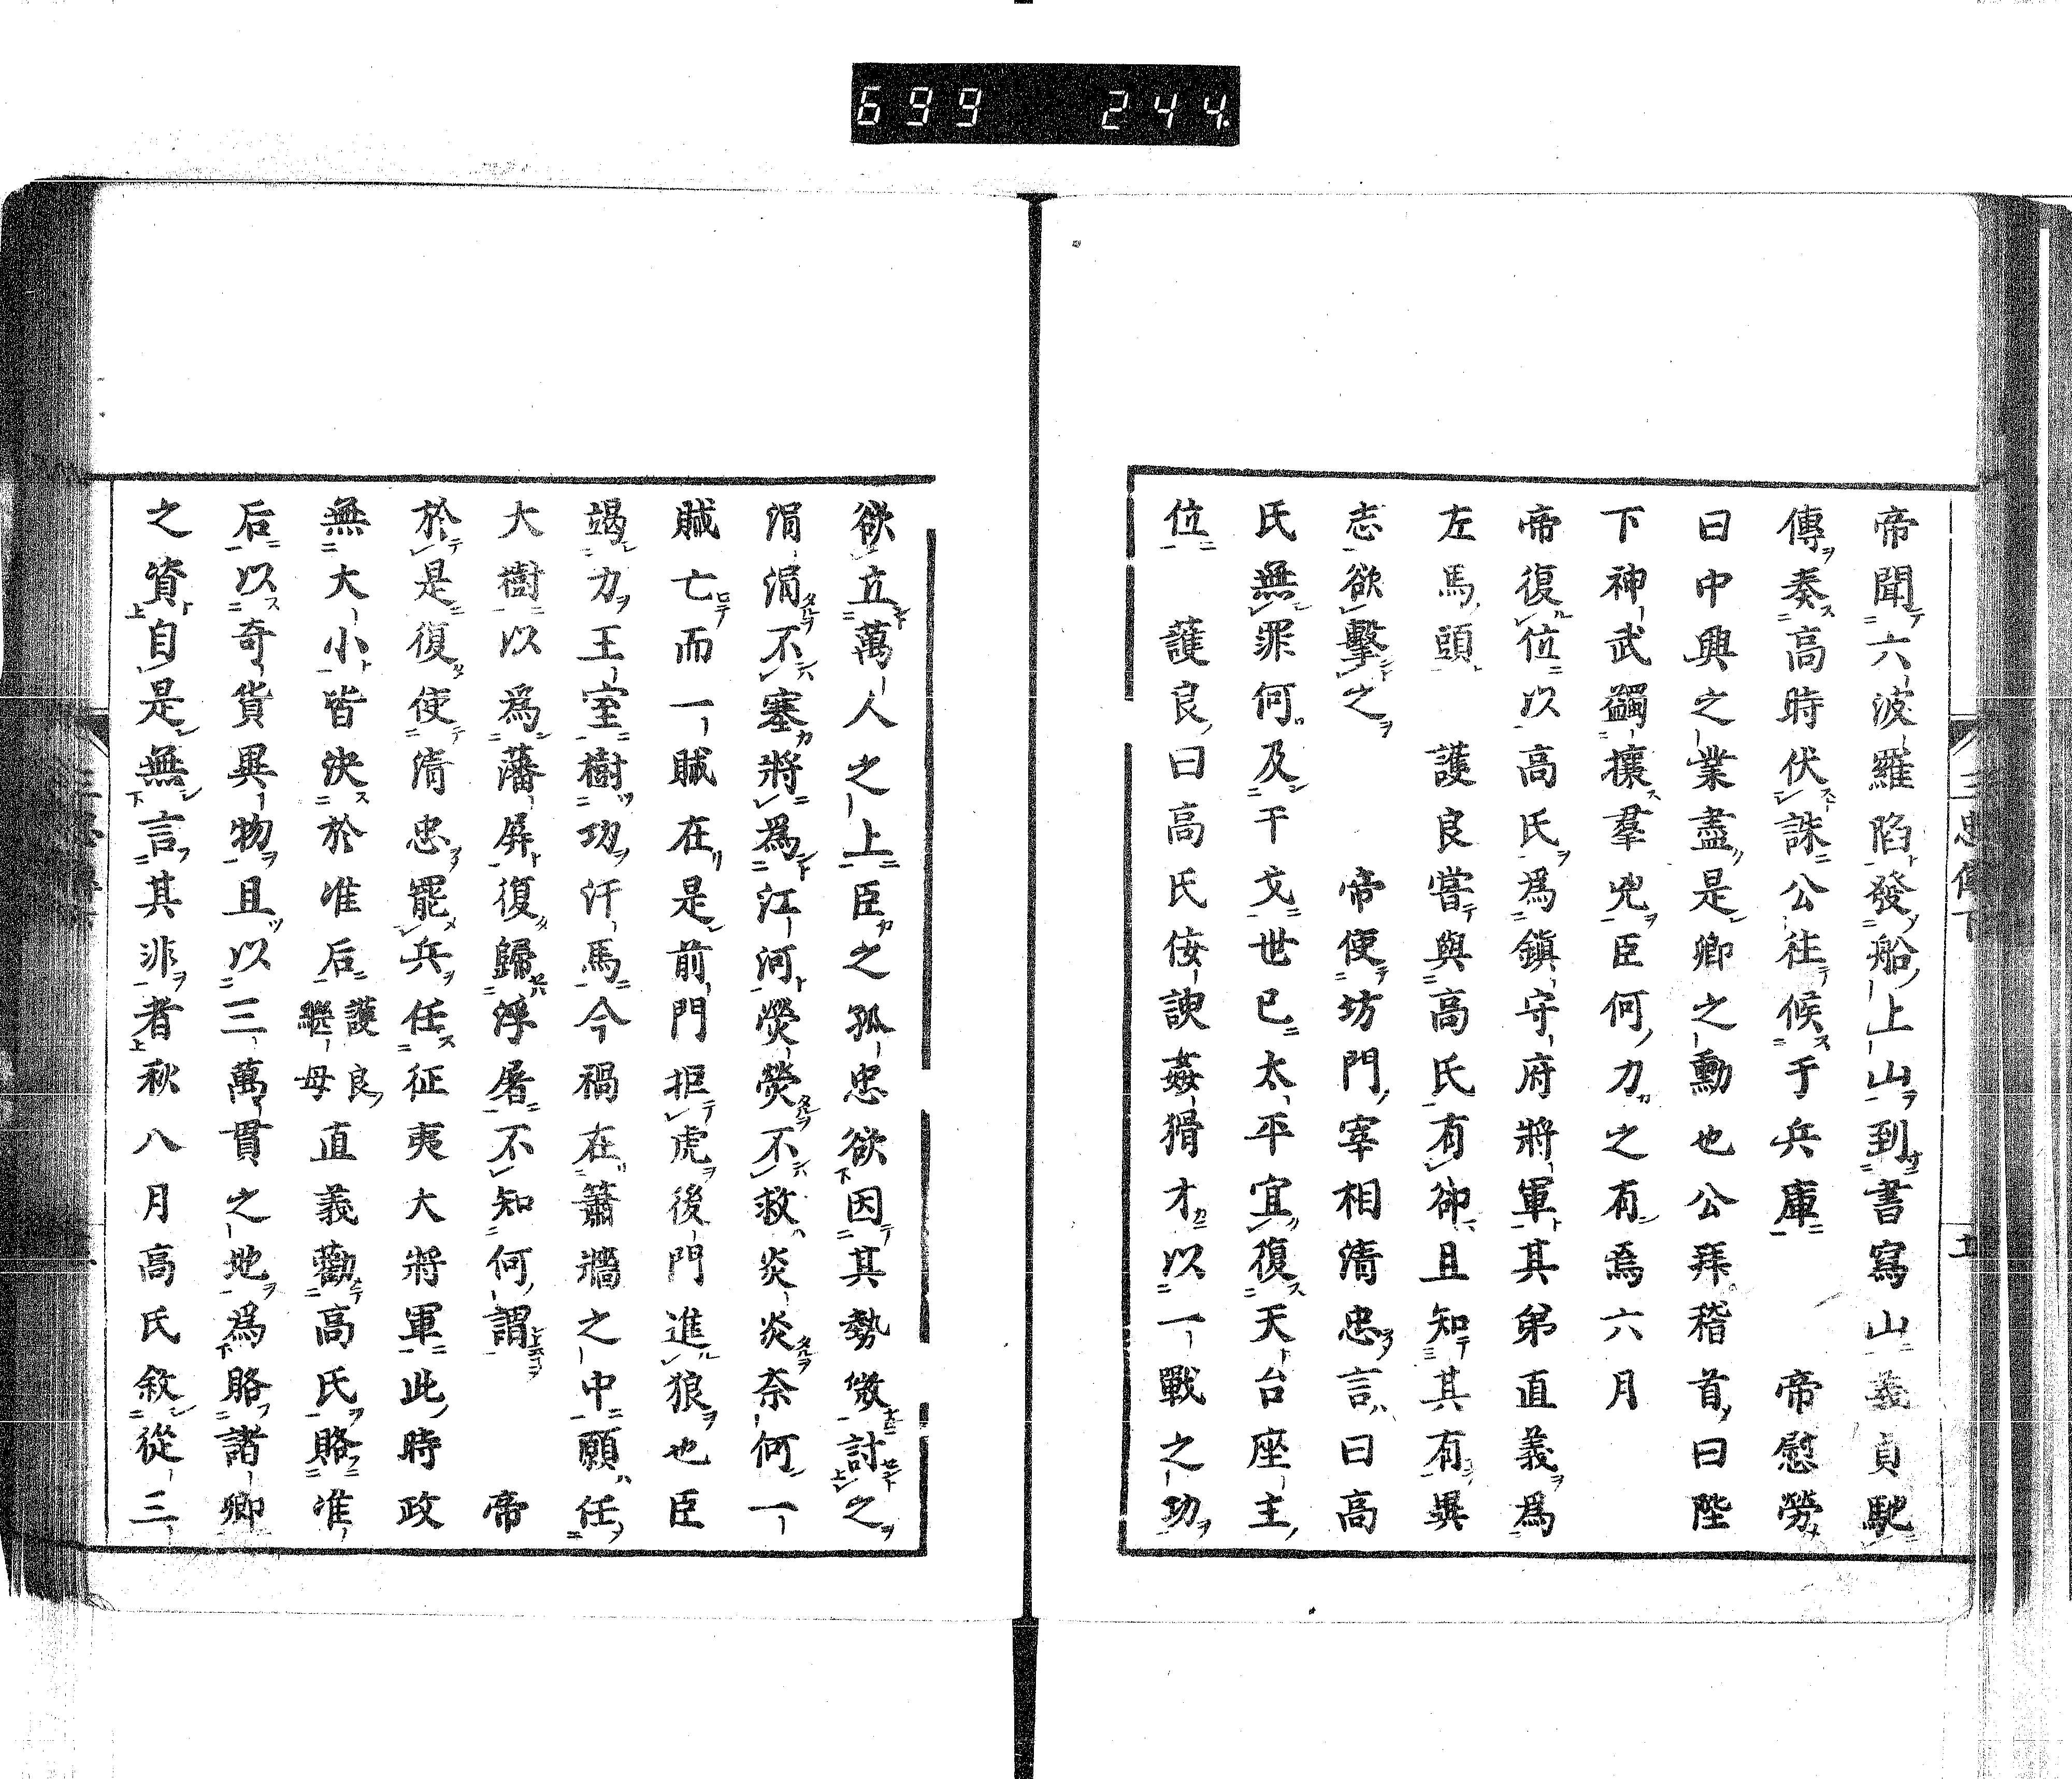 699 244.
三忠傳下
十
帝聞六波羅陷發船上山到書寫山義貞馳
傳奏高時伏誅公往候于兵庫　帝慰勞
曰中興之業盡是卿之勳也公拜稽首曰陛
下神武蠲攘羣兇臣何力之有焉六月
帝復位以高氏爲鎭守府將軍其弟直義爲
左馬頭　護良嘗與高氏有郤且知其有異
志欲擊之　帝使坊門宰相清忠言曰高
氏無罪何及干戈世已太平宜復天台座主
位　護良曰高氏侫諛姦猾才以一戰之功
欲立萬人之上臣之孤忠欲因其勢微討之
涓涓不塞將爲江河熒熒不救炎炎奈何一
賊亡而一賊在是前門拒虎後門進狼也臣
竭力王室樹功汗馬今禍在蕭牆之中願任
大樹以爲藩屏復歸浮屠不知何謂　帝
於是復使清忠罷兵任征夷大將軍此時政
無大小皆決於准后護良繼母直義勸高氏賂准
后以奇貨異物且以三萬貫之地爲賂諸卿
之資自是無言其非者秋八月高氏敘從三